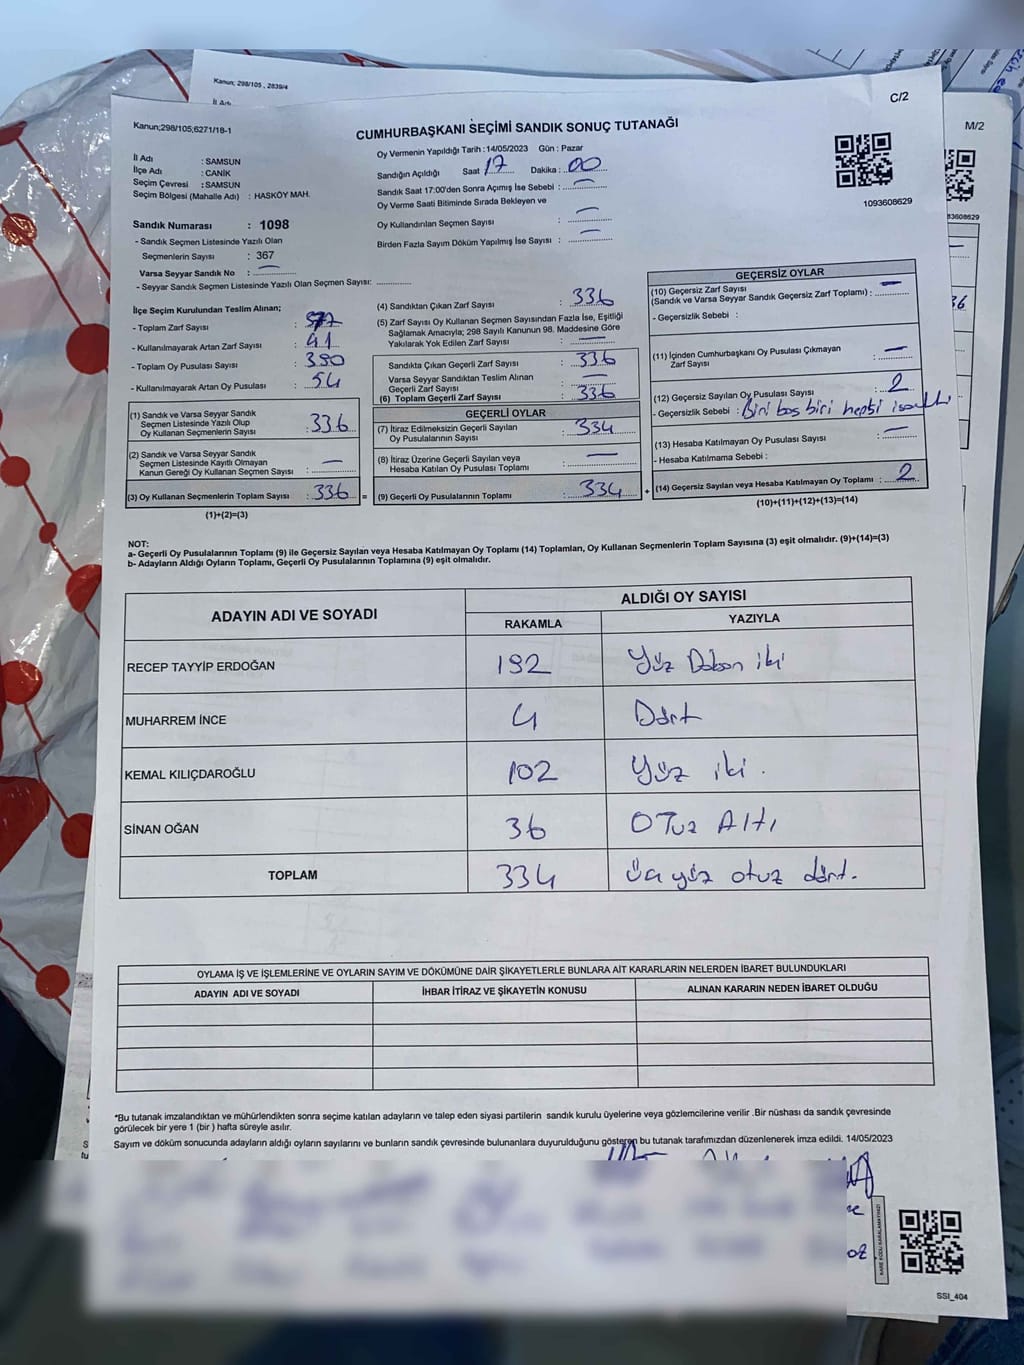 Kanun; 298/105 , 2839/4
İl Adı
C/2
M/2
Kanun;298/105;6271/18-1
CUMHURBAŞKANI SEÇİMİ SANDIK SONUÇ TUTANAĞI
İl Adı : SAMSUN
İlçe Adı : CANİK
Seçim Çevresi : SAMSUN
Seçim Bölgesi (Mahalle Adı) : HASKÖY MAH.
Oy Vermenin Yapıldığı Tarih :14/05/2023 Gün : Pazar
Sandığın Açıldığı Saat 17 Dakika : 00
Sandık Saat 17:00'den Sonra Açımış İse Sebebi : —
Oy Verme Saati Bitiminde Sırada Bekleyen ve
Oy Kullandırılan Seçmen Sayısı : —
Birden Fazla Sayım Döküm Yapılmış İse Sayısı : —
1093608629
93608629
Sandık Numarası : 1098
- Sandık Seçmen Listesinde Yazılı Olan
Seçmenlerin Sayısı : 367
Varsa Seyyar Sandık No : —
- Seyyar Sandık Seçmen Listesinde Yazılı Olan Seçmen Sayısı: ............
İlçe Seçim Kurulundan Teslim Alınan;
- Toplam Zarf Sayısı : 377
- Kullanılmayarak Artan Zarf Sayısı : 41
- Toplam Oy Pusulası Sayısı : 390
- Kullanılmayarak Artan Oy Pusulası : 54
(1) Sandık ve Varsa Seyyar Sandık
Seçmen Listesinde Yazılı Olup
Oy Kullanan Seçmenlerin Sayısı : 336
(2) Sandık ve Varsa Seyyar Sandık
Seçmen Listesinde Kayıtlı Olmayan
Kanun Gereği Oy Kullanan Seçmen Sayısı : —
(3) Oy Kullanan Seçmenlerin Toplam Sayısı : 336 =
(1)+(2)=(3)
(4) Sandıktan Çıkan Zarf Sayısı : 336
(5) Zarf Sayısı Oy Kullanan Seçmen Sayısından Fazla İse, Eşitliği
Sağlamak Amacıyla; 298 Sayılı Kanunun 98. Maddesine Göre
Yakılarak Yok Edilen Zarf Sayısı : —
Sandıkta Çıkan Geçerli Zarf Sayısı : 336
Varsa Seyyar Sandıktan Teslim Alınan
Geçerli Zarf Sayısı : —
(6) Toplam Geçerli Zarf Sayısı : 336
GEÇERLİ OYLAR
(7) İtiraz Edilmeksizin Geçerli Sayılan
Oy Pusulalarının Sayısı : 334
(8) İtiraz Üzerine Geçerli Sayılan veya
Hesaba Katılan Oy Pusulası Toplamı : —
(9) Geçerli Oy Pusulalarının Toplamı : 334 +
GEÇERSİZ OYLAR
(10) Geçersiz Zarf Sayısı
(Sandık ve Varsa Seyyar Sandık Geçersiz Zarf Toplamı) : —
- Geçersizlik Sebebi :
(11) İçinden Cumhurbaşkanı Oy Pusulası Çıkmayan
Zarf Sayısı : —
(12) Geçersiz Sayılan Oy Pusulası Sayısı : 2
- Geçersizlik Sebebi : Biri boş biri hepsi
(13) Hesaba Katılmayan Oy Pusulası Sayısı : —
- Hesaba Katılmama Sebebi :
(14) Geçersiz Sayılan veya Hesaba Katılmayan Oy Toplamı : 2
(10)+(11)+(12)+(13)=(14)
NOT:
a- Geçerli Oy Pusulalarının Toplamı (9) ile Geçersiz Sayılan veya Hesaba Katılmayan Oy Toplamı (14) Toplamları, Oy Kullanan Seçmenlerin Toplam Sayısına (3) eşit olmalıdır. (9)+(14)=(3)
b- Adayların Aldığı Oyların Toplamı, Geçerli Oy Pusulalarının Toplamına (9) eşit olmalıdır.
ADAYIN ADI VE SOYADI ALDIĞI OY SAYISI
RAKAMLA YAZIYLA
RECEP TAYYİP ERDOĞAN 192 Yüz Doksan iki
MUHARREM İNCE 4 Dört
KEMAL KILIÇDAROĞLU 102 Yüz iki .
SİNAN OĞAN 36 OTuz Altı
TOPLAM 334 üç yüz otuz dört.
OYLAMA İŞ VE İŞLEMLERİNE VE OYLARIN SAYIM VE DÖKÜMÜNE DAİR ŞİKAYETLERLE BUNLARA AİT KARARLARIN NELERDEN İBARET BULUNDUKLARI
ADAYIN ADI VE SOYADI İHBAR İTİRAZ VE ŞİKAYETİN KONUSU ALINAN KARARIN NEDEN İBARET OLDUĞU
*Bu tutanak imzalandıktan ve mühürlendikten sonra seçime katılan adayların ve talep eden siyasi partilerin sandık kurulu üyelerine veya gözlemcilerine verilir .Bir nüshası da sandık çevresinde
görülecek bir yere 1 (bir ) hafta süreyle asılır.
Sayım ve döküm sonucunda adayların aldığı oyların sayılarını ve bunların sandık çevresinde bulunanlara duyurulduğunu gösteren bu tutanak tarafımızdan düzenlenerek imza edildi. 14/05/2023
KARE KODU KARALAMAYINIZ!
SSI_404